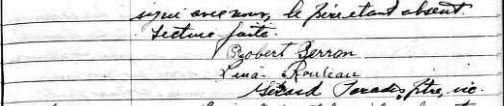 signé avec nous, le père étant absent.
Lecture faite.
Robert Perron
Lina Rouleau
Gérard Paradis, ptre, vic.